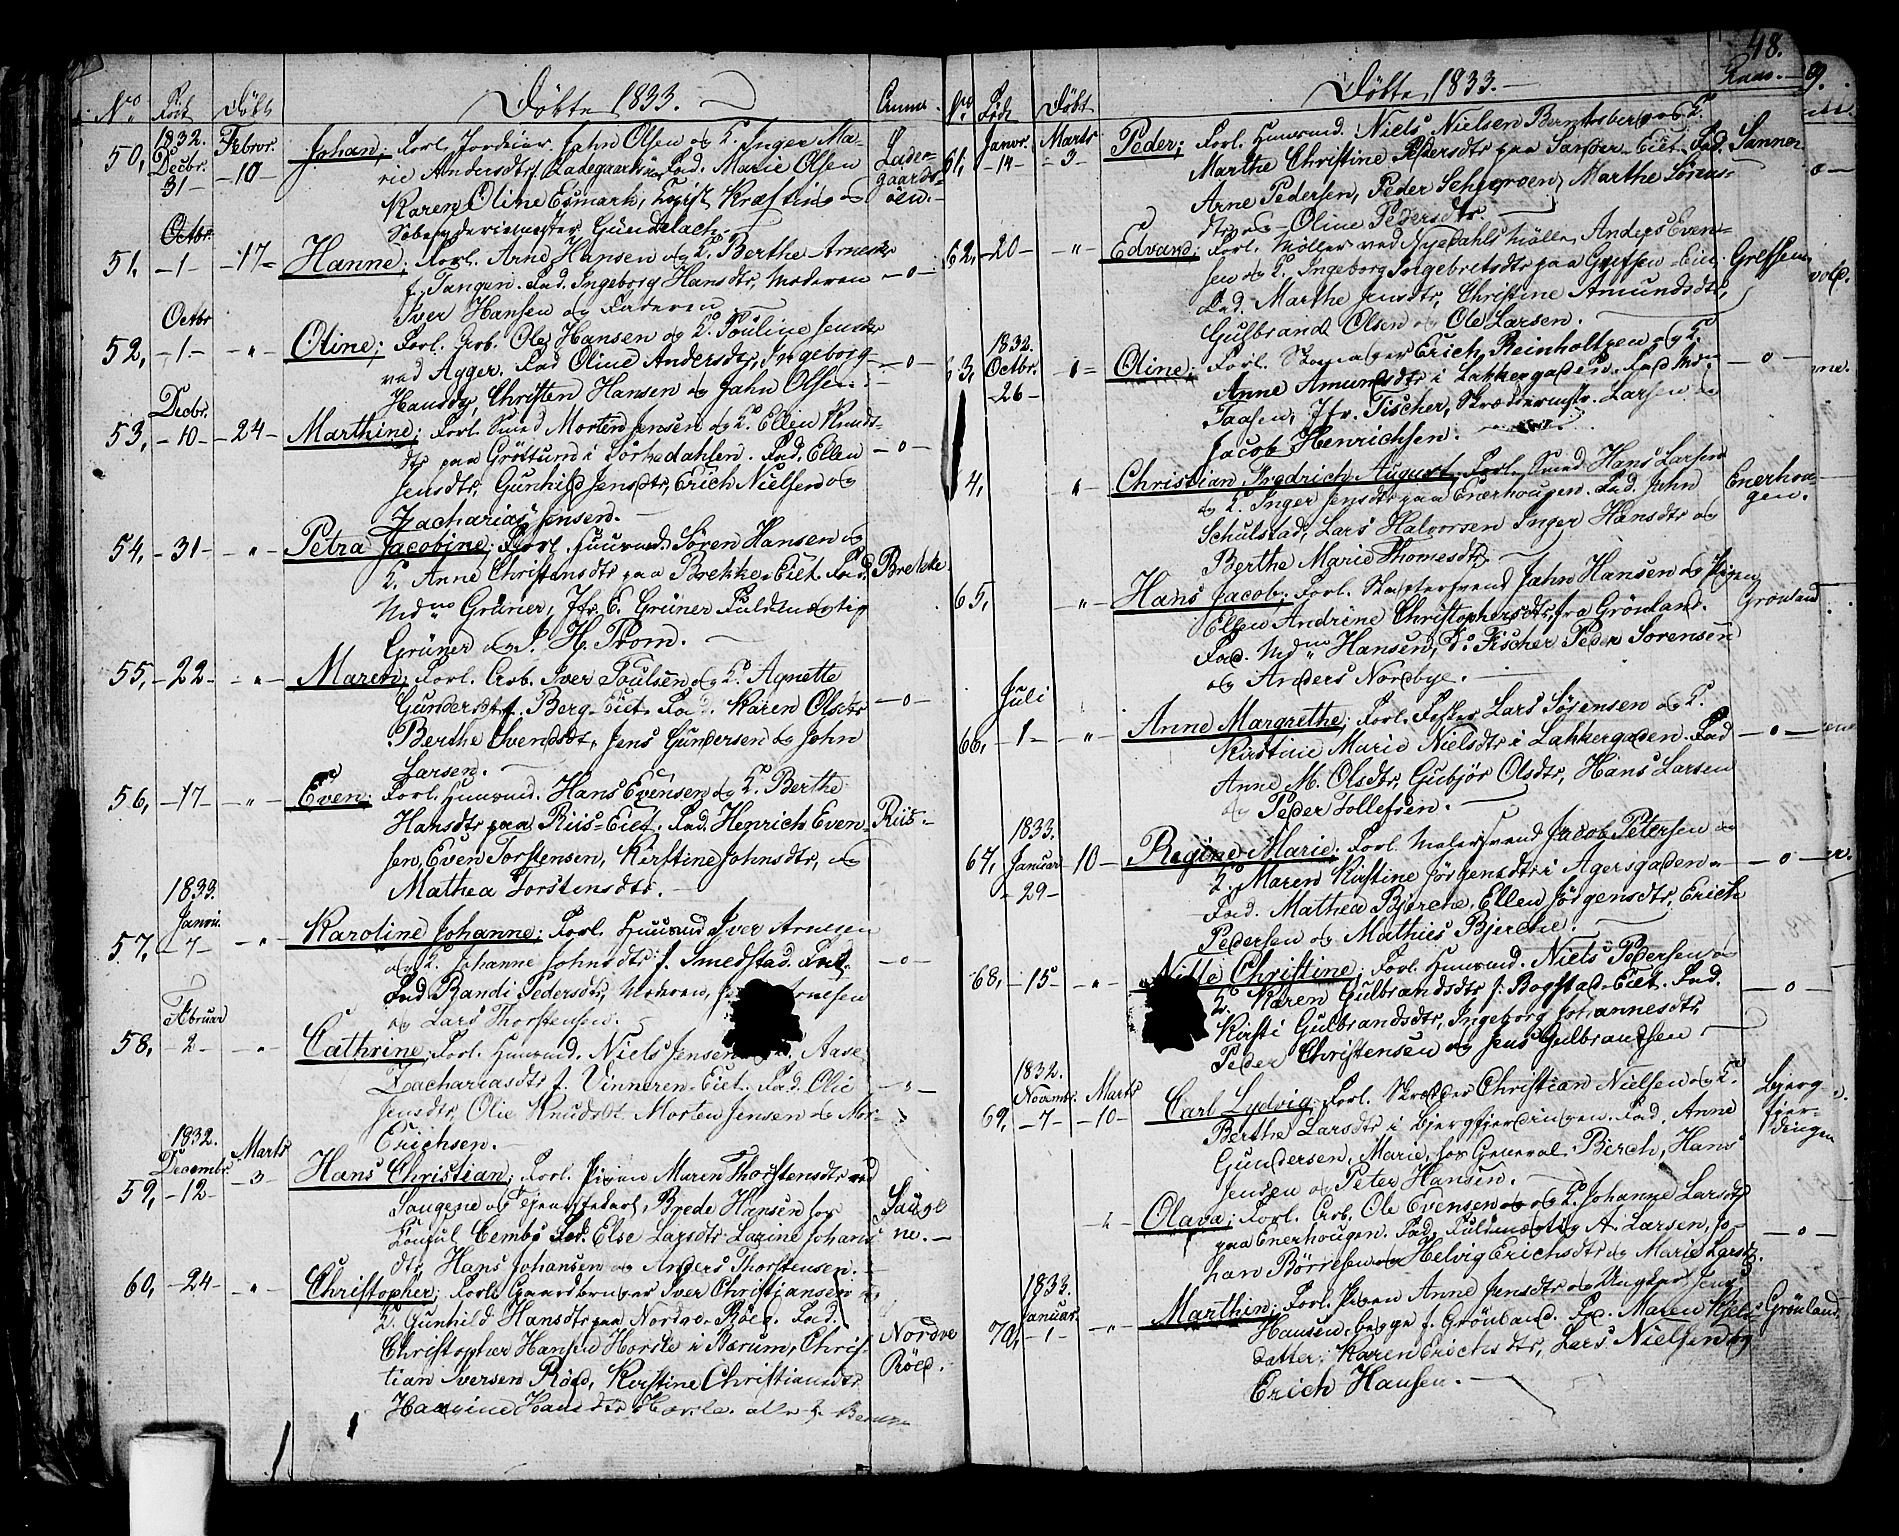 No Født Döbt Döbte 1833. Anme
1832. Decbr. 31 Februr. 10
50, Johan; Forl. Jordeier John Olsen og K. Inger Ma-
rie Andersdtr Ladegaardsöen Fad. Marie Olsen Lade-
Karen Oline Esmark, gaards-
öen.
Gundelach.
Octbr.
51, -1- -17- Hanne; Forl. Arne Hansen og K. Berthe Arnesdtr
f. Tangen. Fad. Ingeborg Hansdtr, Moderen -o-
Iver Hansen og Faderen
Octbr
52, -1- -"- Oline; Forl. Arb. Ole Hansen og K. Pouline Jensdtr
ved Agger. Fad Oline Andersdtr, Ingeborg -o-
Hansdtr, Christen Hansen og John Olsen.
Decbr.
53, -10- -24- Marthine; Forl. Smed Morten Jensen og K. Ellen Knuds-
dtr paa Gröttum i Sörkedahlen. Fad. Ellen -o-
Jensdtr, Gunhild Jensdtr, Erich Nielsen og
Zacharias Jensen.
54, -31- -"- Petra Jacobine; Forl. Huusmd. Sören Hansen og
K. Anne Christensdtr paa Brekke-Eiet. Fad. Brekke
Mdme Grüner, Jfr. E. Grüner Fuldmægtig
Grüner og P. H. Trom.
55, -22- -"- Maren; Forl. Arb. Iver Poulsen og K. Agnette
Gundersdtr f. Berg-Eiet. Fad. Karen Olsdtr -o-
Berthe Svendsdtr, Jens Gundersen og John
Larsen.
56, -17- -"- Even; Forl. Huusmd. Hans Evensen og K. Berthe
Hansdtr paa Riis-Eiet. Fad. Henrich Even- Riis-
sen, Even Torstensen, Kirstine Johnsdtr, og
Mathea Torstensdtr.
1833. Januri.
57, -7- -"- Karoline Johanne; Forl. Huusmd Iver Arnesen
og K. Johanne Johnsdtr f. Smedstad. Fad. -o-
Fad Randi Pedersdtr, Moderen, Arnesen
og Lars Thorstensen.
Februar
58, -2- -"- Cathrine; Forl. Huusmd. Niels Jensen Aase
Zachariasdtr f. Vinneren-Eiet. Fad. Olie -"-
Jensdtr, Olie Knudsdtr Morten Jensen og Mor-
Erichsen.
1832. Decembr. Marts
59, -12- -3- Hans Christian; Forl. Pigen Maren Thorstensdtr ved
Saugene og Tjenestekarl, Brede Hansen hos Sauge
Consul Fad. Else Larsdtr Lorine Johans ne.
dtr, Hans Johansen og Anders Thorstensen.
60, -24- -"- Christopher; Forl. Gaardbruger Iver Christiansen og
K. Gunhild Hansdtr paa Nordre-Röed. Fad. Nordre
Christopher Hansen Horsle i Bærum, Chris- Röed.
tian Iversen Röed, Kirstine Christiansdtr
Haagine Hansdtr Horsle. alle f. Bærum
48.
No Født Döbt Döbte 1833.
Januar Marts
61, -14- -3- Peder; Forl. Huusmd. Niels Nielsen Berntsberg og K.
Marthe Christine Pedersdtr paa Sander-Eiet. Fad. Sanner
Arne Pedersen, Peder Marthe Sörens-
dtr og Oline Pedersdtr.
62, -20- -"- Edvard; Forl. Möller ved Nydahls Mölle, Anders Even-
sen og K. Ingeborg Ingebretsdtr paa Grefsen-Eiet. Grefsen
Fad. Marthe Jensdtr, Christine Amundsdtr,
Gulbrand Olsen og Ole Larsen.
1832. Octbr. -26-
63, -"- Oline; Forl. Skomager Erich Reinholtzen og K. -o-
Anne Amundsdtr i Lakkergaden. Fad. Mdme
Taasen, Jfr. Fischer, Skræddermstr. Larsen og
Jacob Henrichsen.
4, -"- Christian Fredrich August; Forl. Smed Hans Larsen
og K. Inger Jensdtr paa Enerhougen. Fad. John Enerhou-
Schulstad, Lars Halvorsen Inger Hansdtr og gen.
Berthe Marie Thomesdtr
65, -"- Hans Jacob; Forl. Skomagersvend John Hansen og Pigen
Ellen Andrine Christophersdtr, fra Grönland. Grönland
Fad. Mdme Hansen, Do. Fischer Peder Sorensen
og Anders Nordbye.
Juli
66, -1- -"- Anne Margrethe; Forl. Fisker Lars Sörensen og K.
Kirstine Marie Nielsdtr i Lakkergaden. Fad -o-
Anne M. Olsdtr, Gubjör Olsdtr, Hans Larsen
og Peder Tollefsen.
1833. Januar
67, -29- 10- Regine Marie. Forl. Malersvend Jacob Petersen og
K. Maren Kirstine Jörgensdtr i Agersgaden -o-
Fad. Mathea Bjerche, Ellen Jörgensdtr, Erich
Pedersen og Mathies Bjerche.
68, -15- -"- Christine; Forl. Huusmd. Niels Pedersen og
K. Karen Gulbrandsdtr f. Bogstad-Eiet. Fad. -o-
Kirsti Gulbrandsdtr, Ingeborg Johannesdtr,
Peder Christensen og Jens Gulbrandsen
1832. Novembr. Marts
69, -7- -10- Carl Ludvig; Forl. Skrædder Christian Nielsen og K. Bjerg-
Berthe Larsdtr i Bjergfjerdingen. Fad. Anne fjer-
Gundersen, Marie, hos General Bierch, Hans dingen
Jensen og Peter Hansen.
-"- Olava; Forl. Arb. Ole Evensen og K. Johanne Larsdtr
paa Enerhougen. Fad. Fuldmægtig A. Larsen, Jo- -o-
han Börresen og Helvig Erichsdtr og Marie Larsdtr.
1833. Januar
70, -1- -"- Marthin; Forl. Pigen Anne Jensdtr og Ungkar Jens
Hansen, begge f. Grönland. Fad. Maren Niels- Grönland.
datter, Karen Erichsdtr, Lars Nielsen og
Erich Hansen.